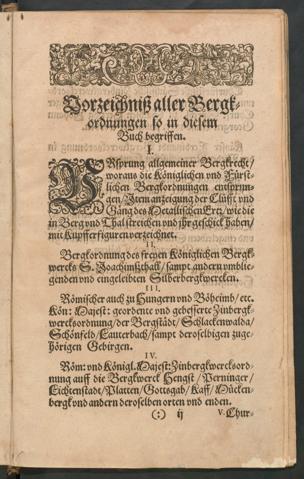 Vorzeichniß aller Bergk-
ordnungen so in diesem
Buch begriffen.
I.
VRsprung allgemeiner Bergkrecht/
woraus die Königlichen vnd Fürst-
lichen Bergkordnungen entsprun-
gen/ Item anzeigung der Clüfft vnd
Gäng des Metallischen Ertz/ wie die
in Berg vnd Thal streichen vnd jhr geschick haben/
mit Kupfferfiguren verzeichnet.
II.
Bergkordnung des freyen Königlichen Bergk-
wercks S. Joachimsthall/ sampt andern vmblie-
genden vnd eingeleibten Silberbergkwercken.
III.
Römischer auch zu Hungern vnd Böheimb/ etc.
Kön: Majest: geordente vnd gebesserte Zinbergk-
wercksordnung/ der Bergstädt/ Schlackenwalda/
Schönfeld/ Lauterbach/ sampt deroselbigen zuge-
hörigen Gebirgen.
IV.
Röm: vnd Königl. Majest: Zinbergkwercksord-
nung auff die Bergkwerck Hengst/ Perninger/
Lichtenstadt/ Platten/ Gottsgab/ Kaff/ Mücken-
bergk vnd andern deroselben orten vnd enden.
(:) ij V. Chur-